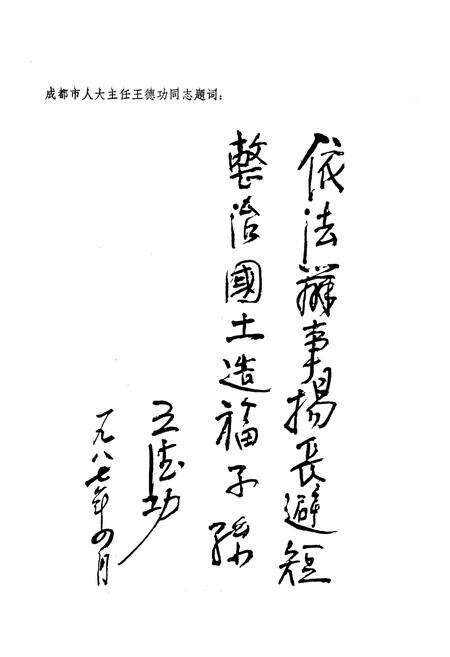 成都市人大主任王德功同志题词：
依法辦事揚長避短
整治國土造福子孫
王德功
一九八七年四月